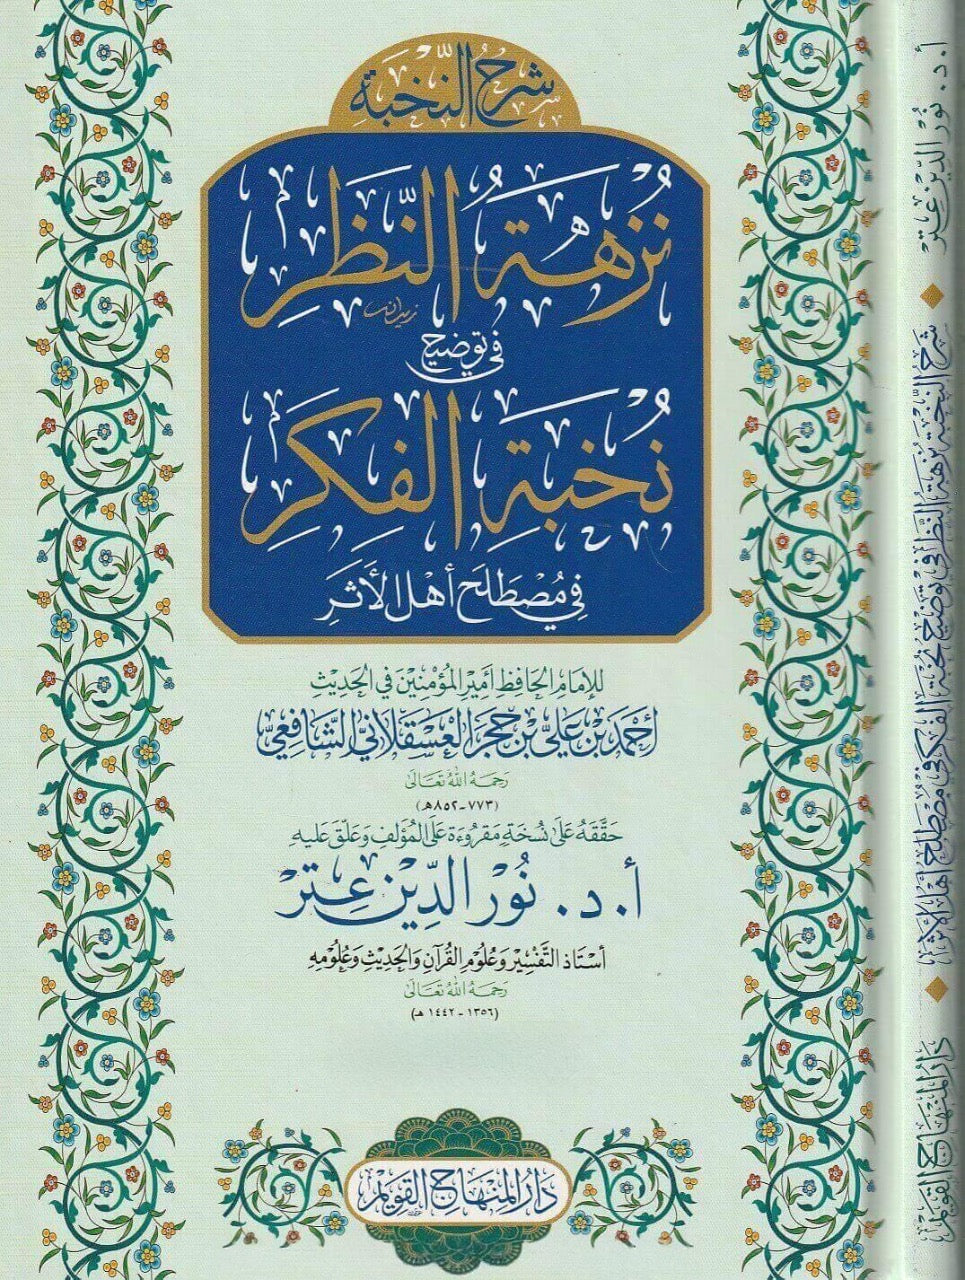 شرح النخبة
نُزهَةُ النَّظَرِ
في توضيح
نُخبَةِ الفِكَرِ
في مُصْطَلَح أهل الأَثَرِ
للإمام الحافظ أمير المُؤْمنين في الحديث
أحمد بن علي بن حجر العسقلاني الشافعي
رحمه الله تعالى
(٧٧٣-٨٥٢هـ)
حققه على نسخة مقروءة على المؤلف وعلق عليه
أ.د. نُور الدِّين عِتر
أستاذ التفسير وعلوم القرآن والحديث وعلومه
رحمه الله تعالى
(١٣٥٦-١٤٤٢هـ)
دار المنهاج القويم
أ.د. نور الدين عتر
شرح النخبة نزهة النظر في توضيح نخبة الفكر في مصطلح أهل الأثر
دار المنهاج القويم